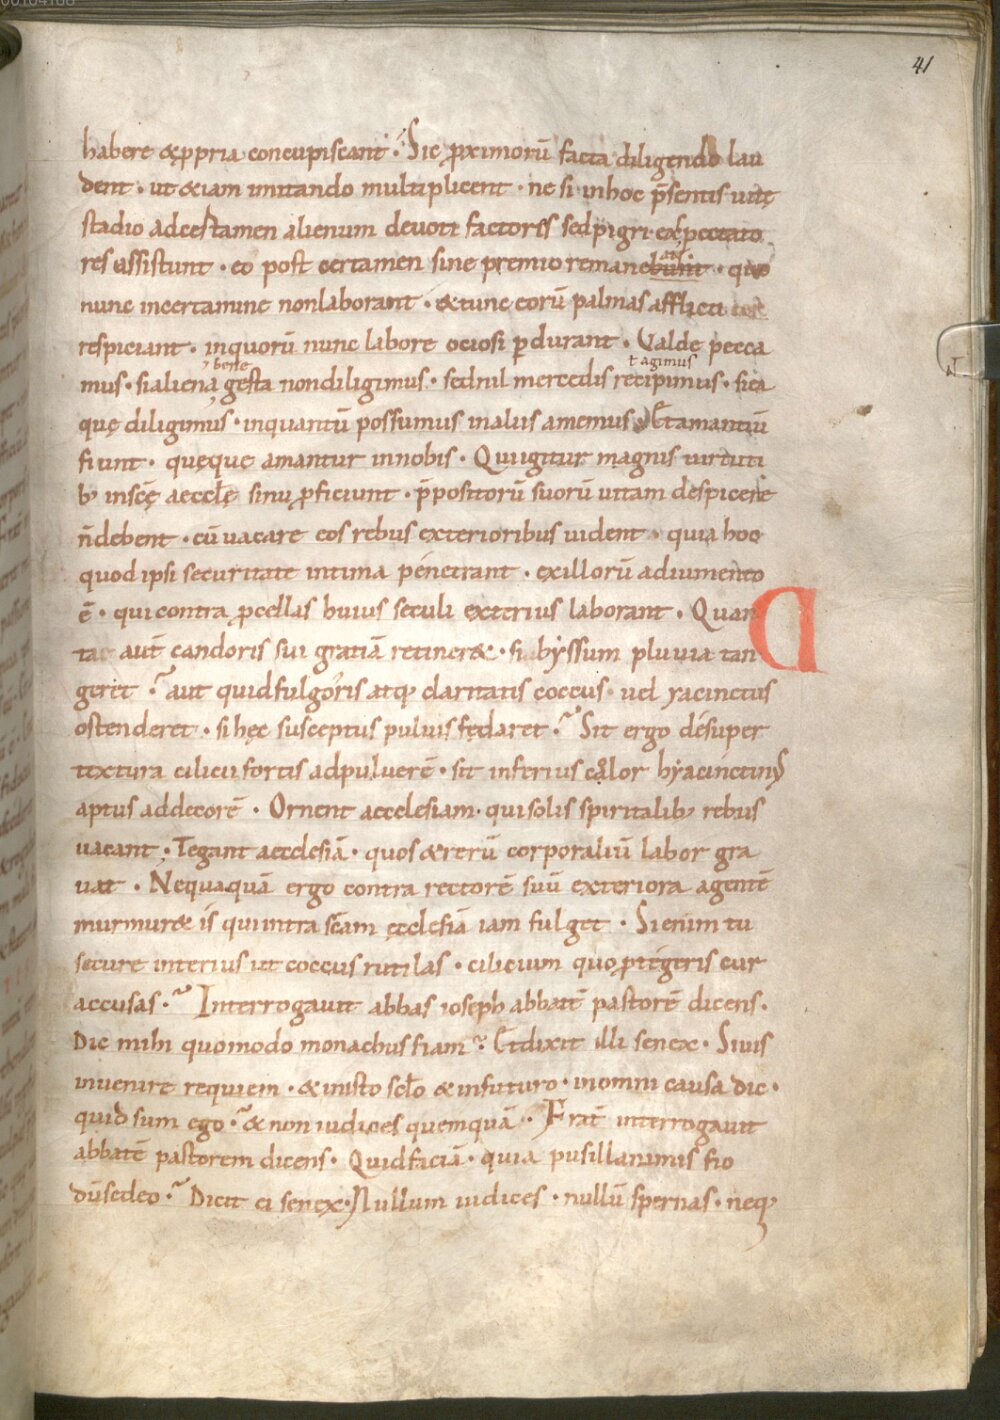 00104188
41
habere &ꝓpria concupiscant · Sic ꝓximorū facta diligendo lau
dent · ut &iam imitando multiplicent · ne si inhoc p̄sentis uitę
stadio adcestamen alienum deuoti factores sedpigri exspectato
res assistunt · eo post certamen sine premio remanebunt · quo
nunc incertamine nonlaborant · &tunc eorū palmas afflicti
respiciant · inquorū nunc labore ociosi ꝑdurant · Valde pecca
bene ł agimus
mus · sialiena gesta nondiligimus · sednil mercedis recipimus · si ea
quę diligimus · inquantū possumus inaliis amemus Etamantiū
fiunt · quęque amantur innobis · Qui igitur magnis uirtuti
b; inscę̄ aeccłę sinu ꝓficiunt · p̄positorū suorū uitam despicere
n̄debent · cū uacare eos rebus exterioribus uident · quia hoc
quod ipsi securitate intima penetrant · exillorū adiumento
ē · qui contra ꝓcellas huius seculi exterius laborant · Quan
D
tae aut̄ candoris sui gratiā retiner& · si byssum pluuia tan
geret · aut quid fulgoris atq; claritatis coccus · uel yacinctus
ostenderet · si hęc susceptus puluis fędaret · Sit ergo désuper
textura cilicii fortis adpuluerē · sit inferius color hyacinctinus
aptus addecorē · Ornent aecclesiam · qui solis spiritalib; rebus
uacant · Tegant aecclesiā · quos &rerū corporaliū labor gra
uat · Nequaquā ergo contra rectorē suū exteriora agentē
murmur& is qui intra scām ęcclesiā iam fulget · Si enim tu
secure interius ut coccus rutilas · cilicium quo ꝓtégeris cur
accusas · Interrogauit abbas ioseph abbatē pastorē dicens ·
Dic mihi quomodo monachus fiam · Et dixit illi senex · Si uis
inuenire requiem · & inisto scło & infuturo · inomni causa dic ·
quid sum ego · & non iudices quemquā · Frat̄ interrogauit
abbatē pastorem dicens · Quid faciā · quia pusillanimis fio
dū sedeo · Dicit ei senex · Nullum iudices · nullū spernas · neq;